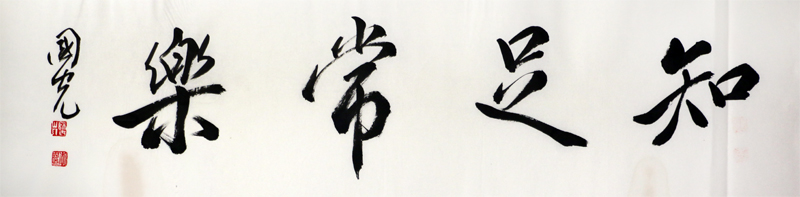 知足常樂
國